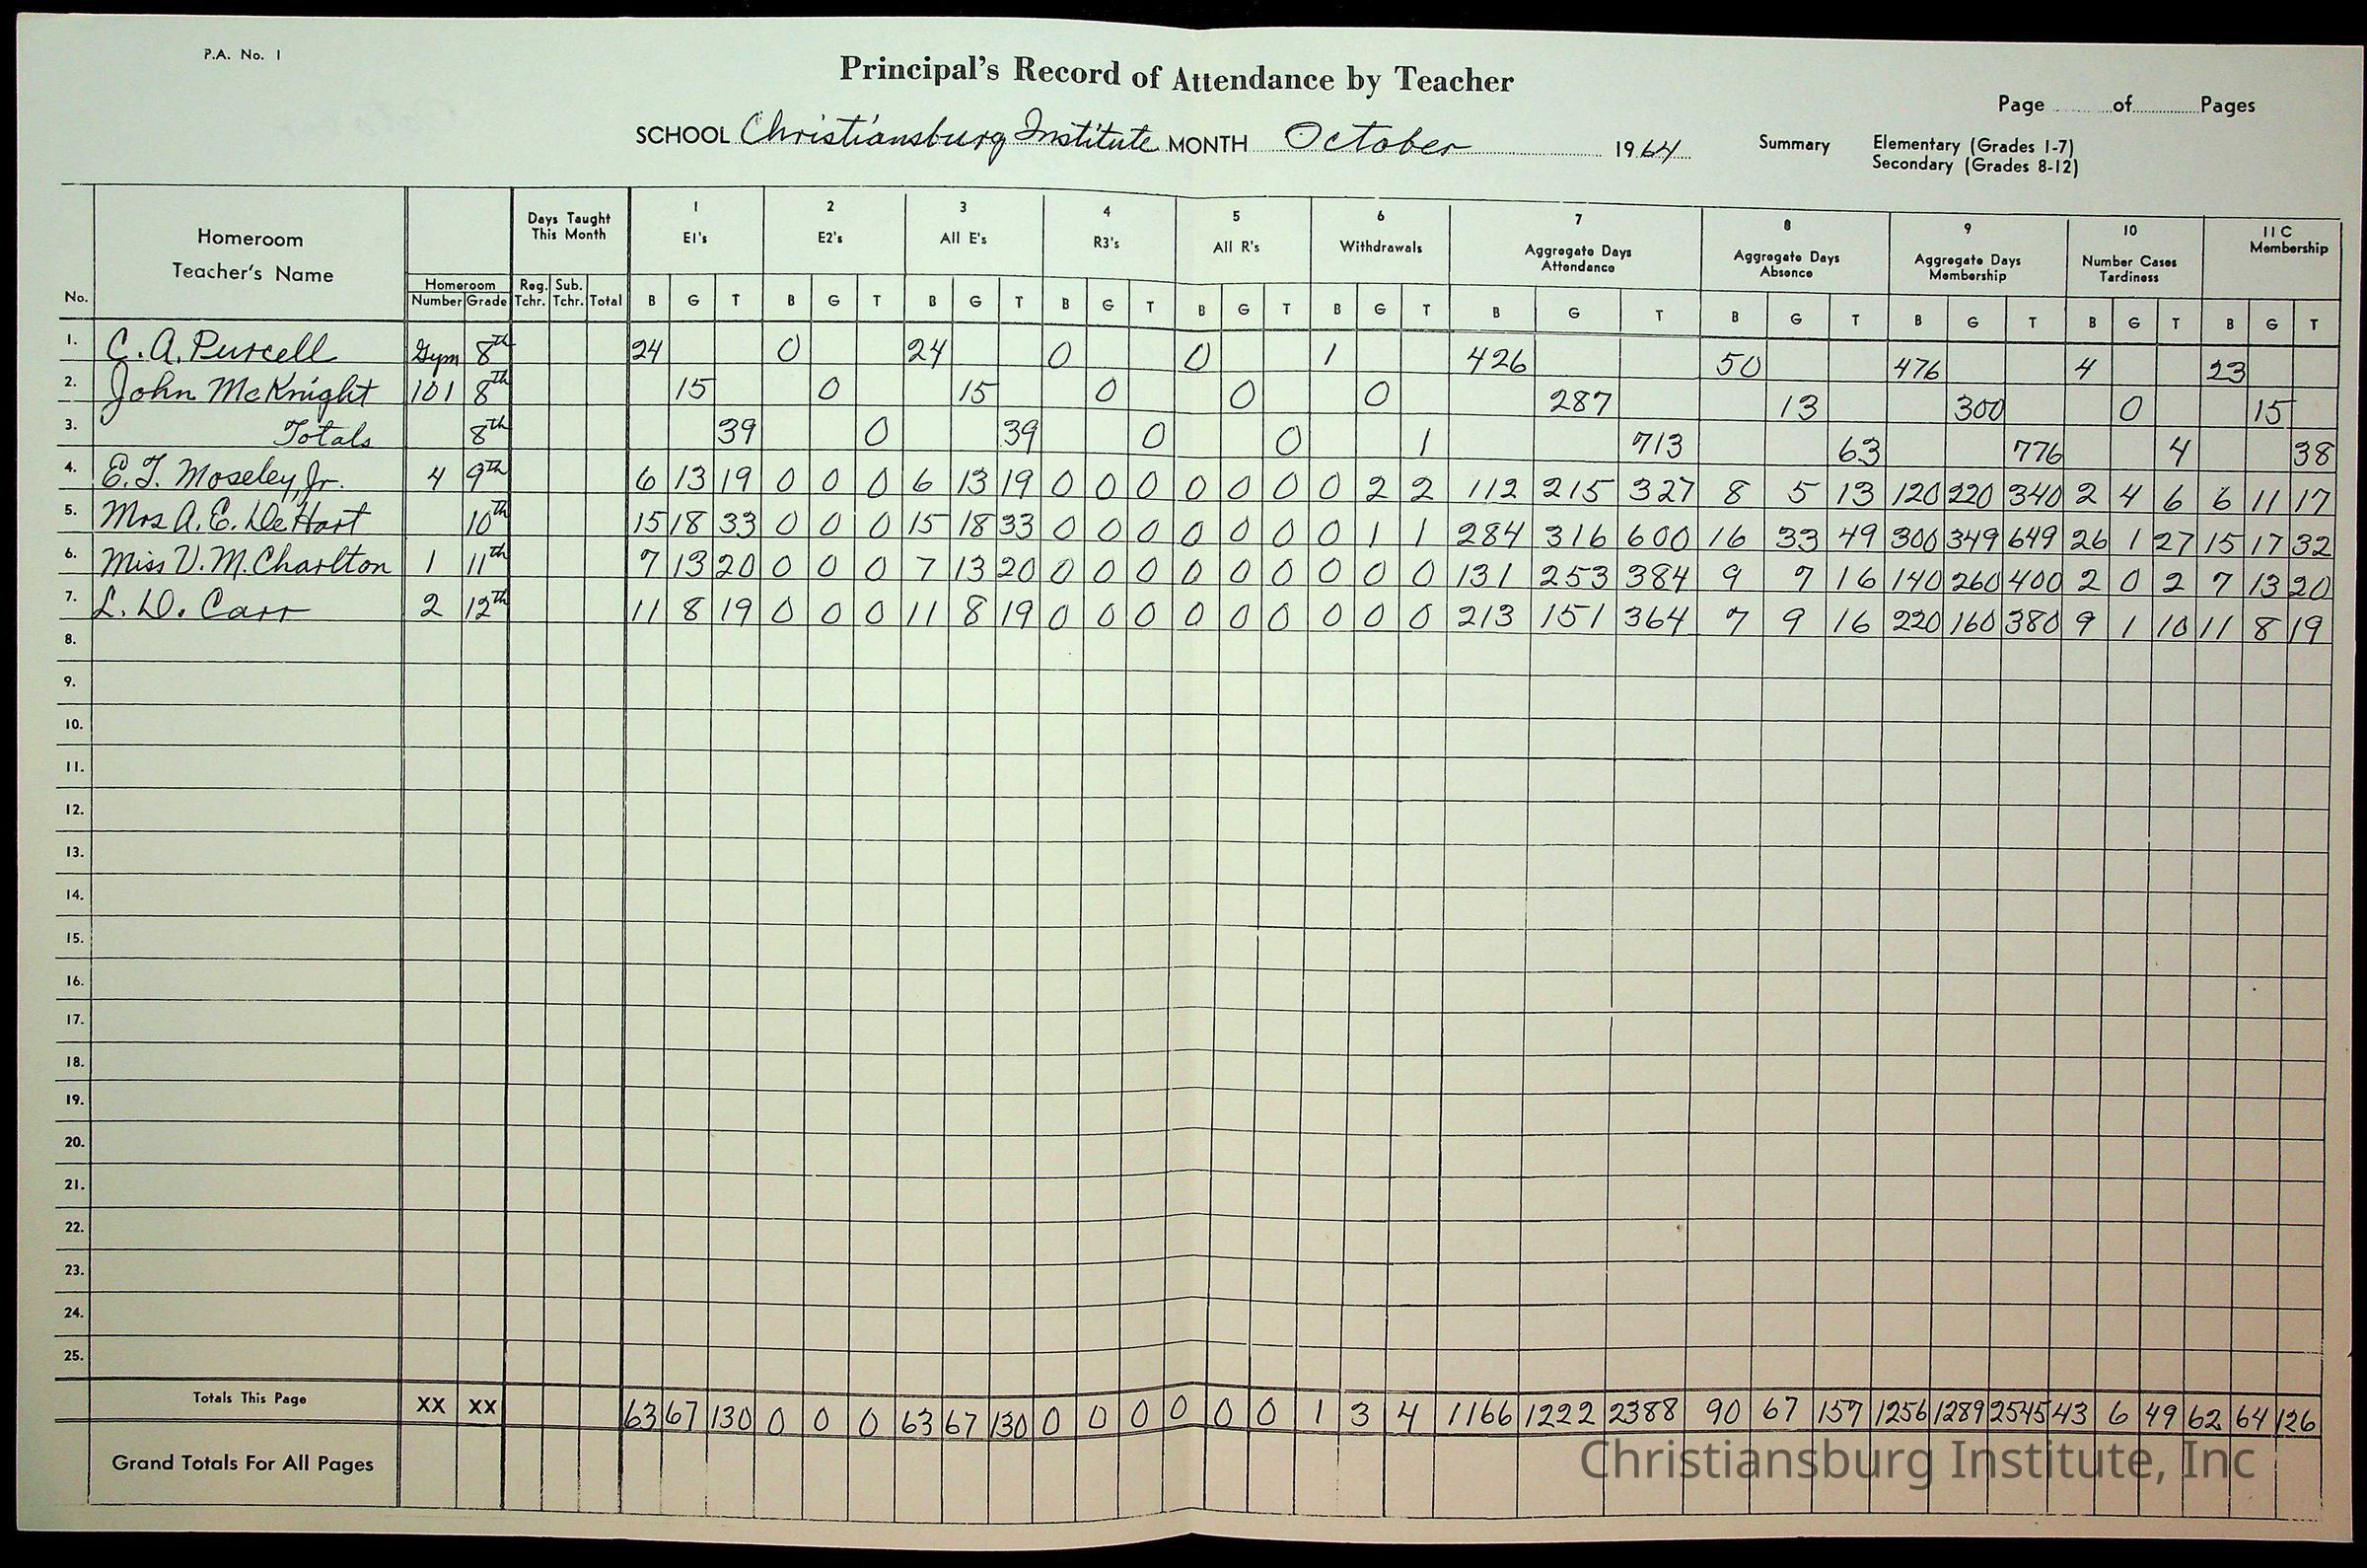 P.A. No. 1
Principal's Record of Attendance by Teacher
Page ........ of ........ Pages
SCHOOL Christiansburg Institute MONTH October 1964
Summary Elementary (Grades 1-7)
Secondary (Grades 8-12)
No. Homeroom Teacher's Name Homeroom Number Grade Days Taught This Month Reg. Tchr. Sub. Tchr. Total 1 E1's B G T 2 E2's B G T 3 All E's B G T 4 R3's B G T 5 All R's B G T 6 Withdrawals B G T 7 Aggregate Days Attendance B G T 8 Aggregate Days Absence B G T 9 Aggregate Days Membership B G T 10 Number Cases Tardiness B G T 11 C Membership B G T
1. C. A. Purcell Gym 8th 24 0 24 0 0 1 426 50 476 4 23
2. John McKnight 101 8th 15 0 15 0 0 0 287 13 300 0 15
3. Totals 8th 39 0 39 0 0 1 713 63 776 4 38
4. E. T. Moseley, Jr. 4 9th 6 13 19 0 0 0 6 13 19 0 0 0 0 0 0 0 2 2 112 215 327 8 5 13 120 220 340 2 4 6 6 11 17
5. Mrs A. E. DeHart 10th 15 18 33 0 0 0 15 18 33 0 0 0 0 0 0 0 1 1 284 316 600 16 33 49 300 349 649 26 1 27 15 17 32
6. Miss V. M. Charlton 1 11th 7 13 20 0 0 0 7 13 20 0 0 0 0 0 0 0 0 0 131 253 384 9 7 16 140 260 400 2 0 2 7 13 20
7. L. D. Carr 2 12th 11 8 19 0 0 0 11 8 19 0 0 0 0 0 0 0 0 0 213 151 364 7 9 16 220 160 380 9 1 10 11 8 19
8.
9.
10.
11.
12.
13.
14.
15.
16.
17.
18.
19.
20.
21.
22.
23.
24.
25.
Totals This Page XX XX 63 67 130 0 0 0 63 67 130 0 0 0 0 0 0 1 3 4 1166 1222 2388 90 67 157 1256 1289 2545 43 6 49 62 64 126
Grand Totals For All Pages
Christiansburg Institute, Inc